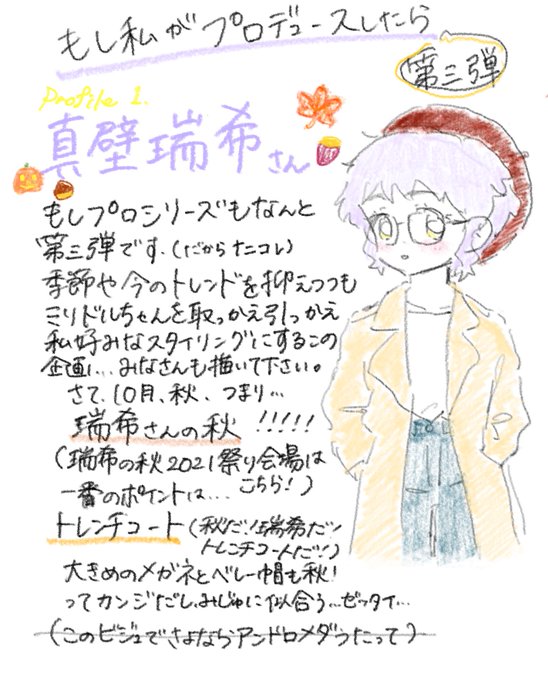 もし私がプロデュースしたら
第三弾
Profile 1.
真壁瑞希さん
もしプロシリーズもなんと
第三弾です.(だからナニコレ)
季節や今のトレンドを抑えつつも
ミリドルちゃんを取っかえ引っかえ
私好みなスタイリングにするこの
企画…みなさんも描いて下さい。
さて、10月、秋、つまり…
瑞希さんの秋 !!!!!
(瑞希の秋2021祭り会場は
こちら!)
一番のポイントは…
トレンチコート(秋だ!瑞希だ!
トレンチコートだ!)
大きめのメガネとベレー帽も秋!
ってカンジだし、みじゅに似合う…ゼッタイ…
(このビジュでさよならアンドロメダうたって)